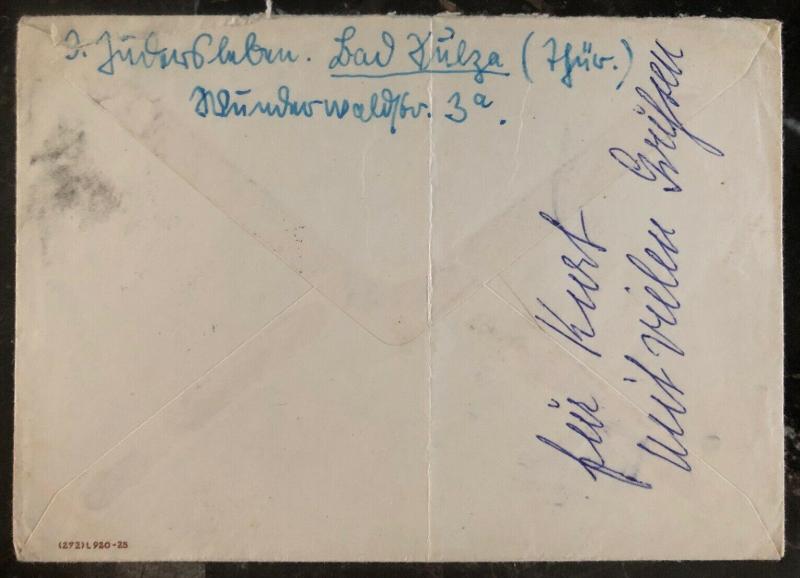 J. Judersleben. Bad Sulza (Thür.)
Wunderwaldstr. 3a.
für Kurt
mit vielen Grüßen
(292) L 920-25